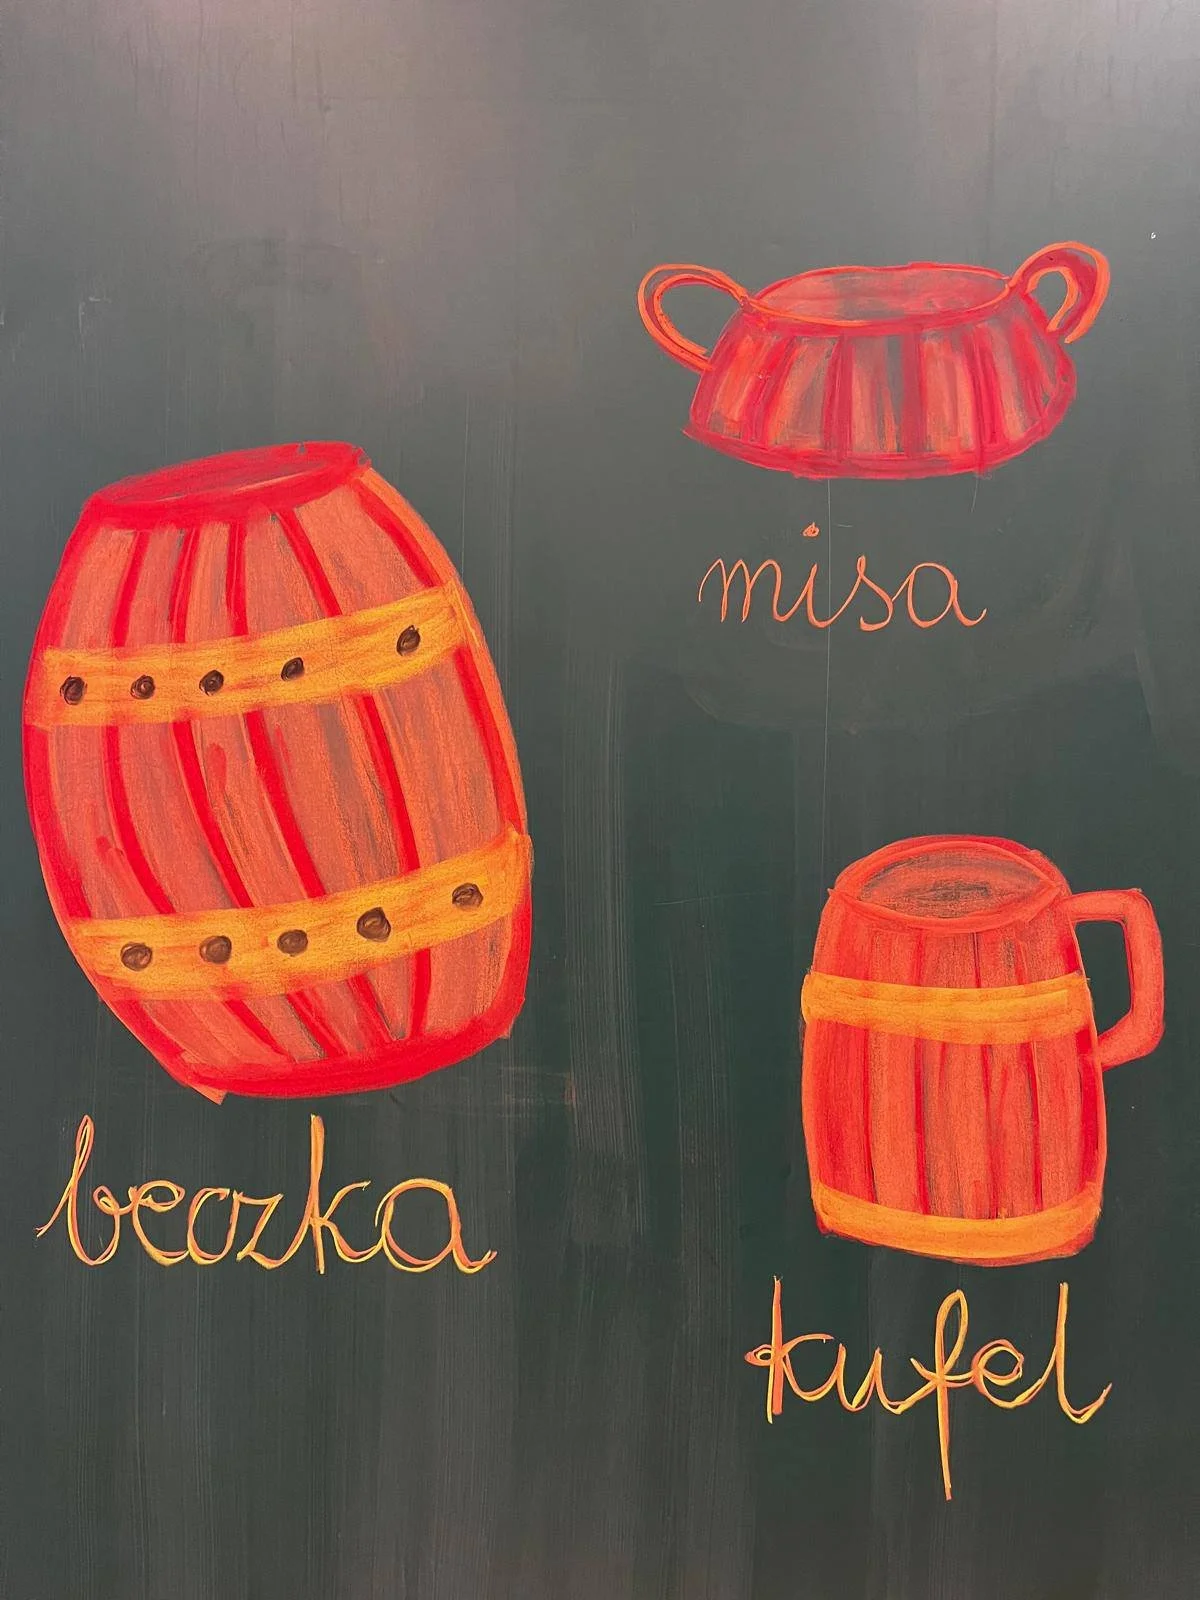 misa
beczka
kufel